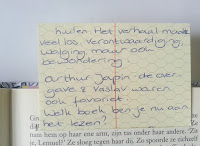 huilen Het verhaal maakt
veel los. Verontwaardiging,
walging maar ook
bewondering
Arthur Japin: de over-
gave & Vaslav waren
ook favoriet.
Welk boek ben je nu aan
het lezen?
nam hem op haar ene arm, zijn zus onder haar andere. 'Zit
je goed?' Ze sloeg tegen haar dij. Zo spoorde ze zichzelf